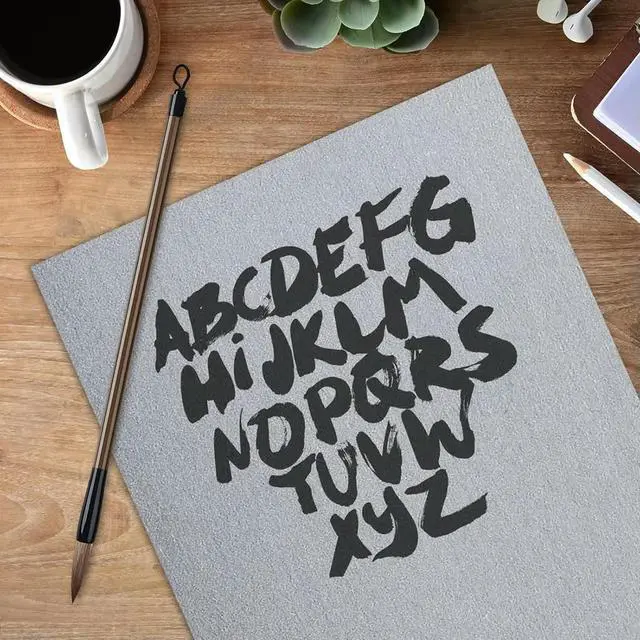 ABCDEFG
HiJKLM
NOPQRS
TUVW
XYZ